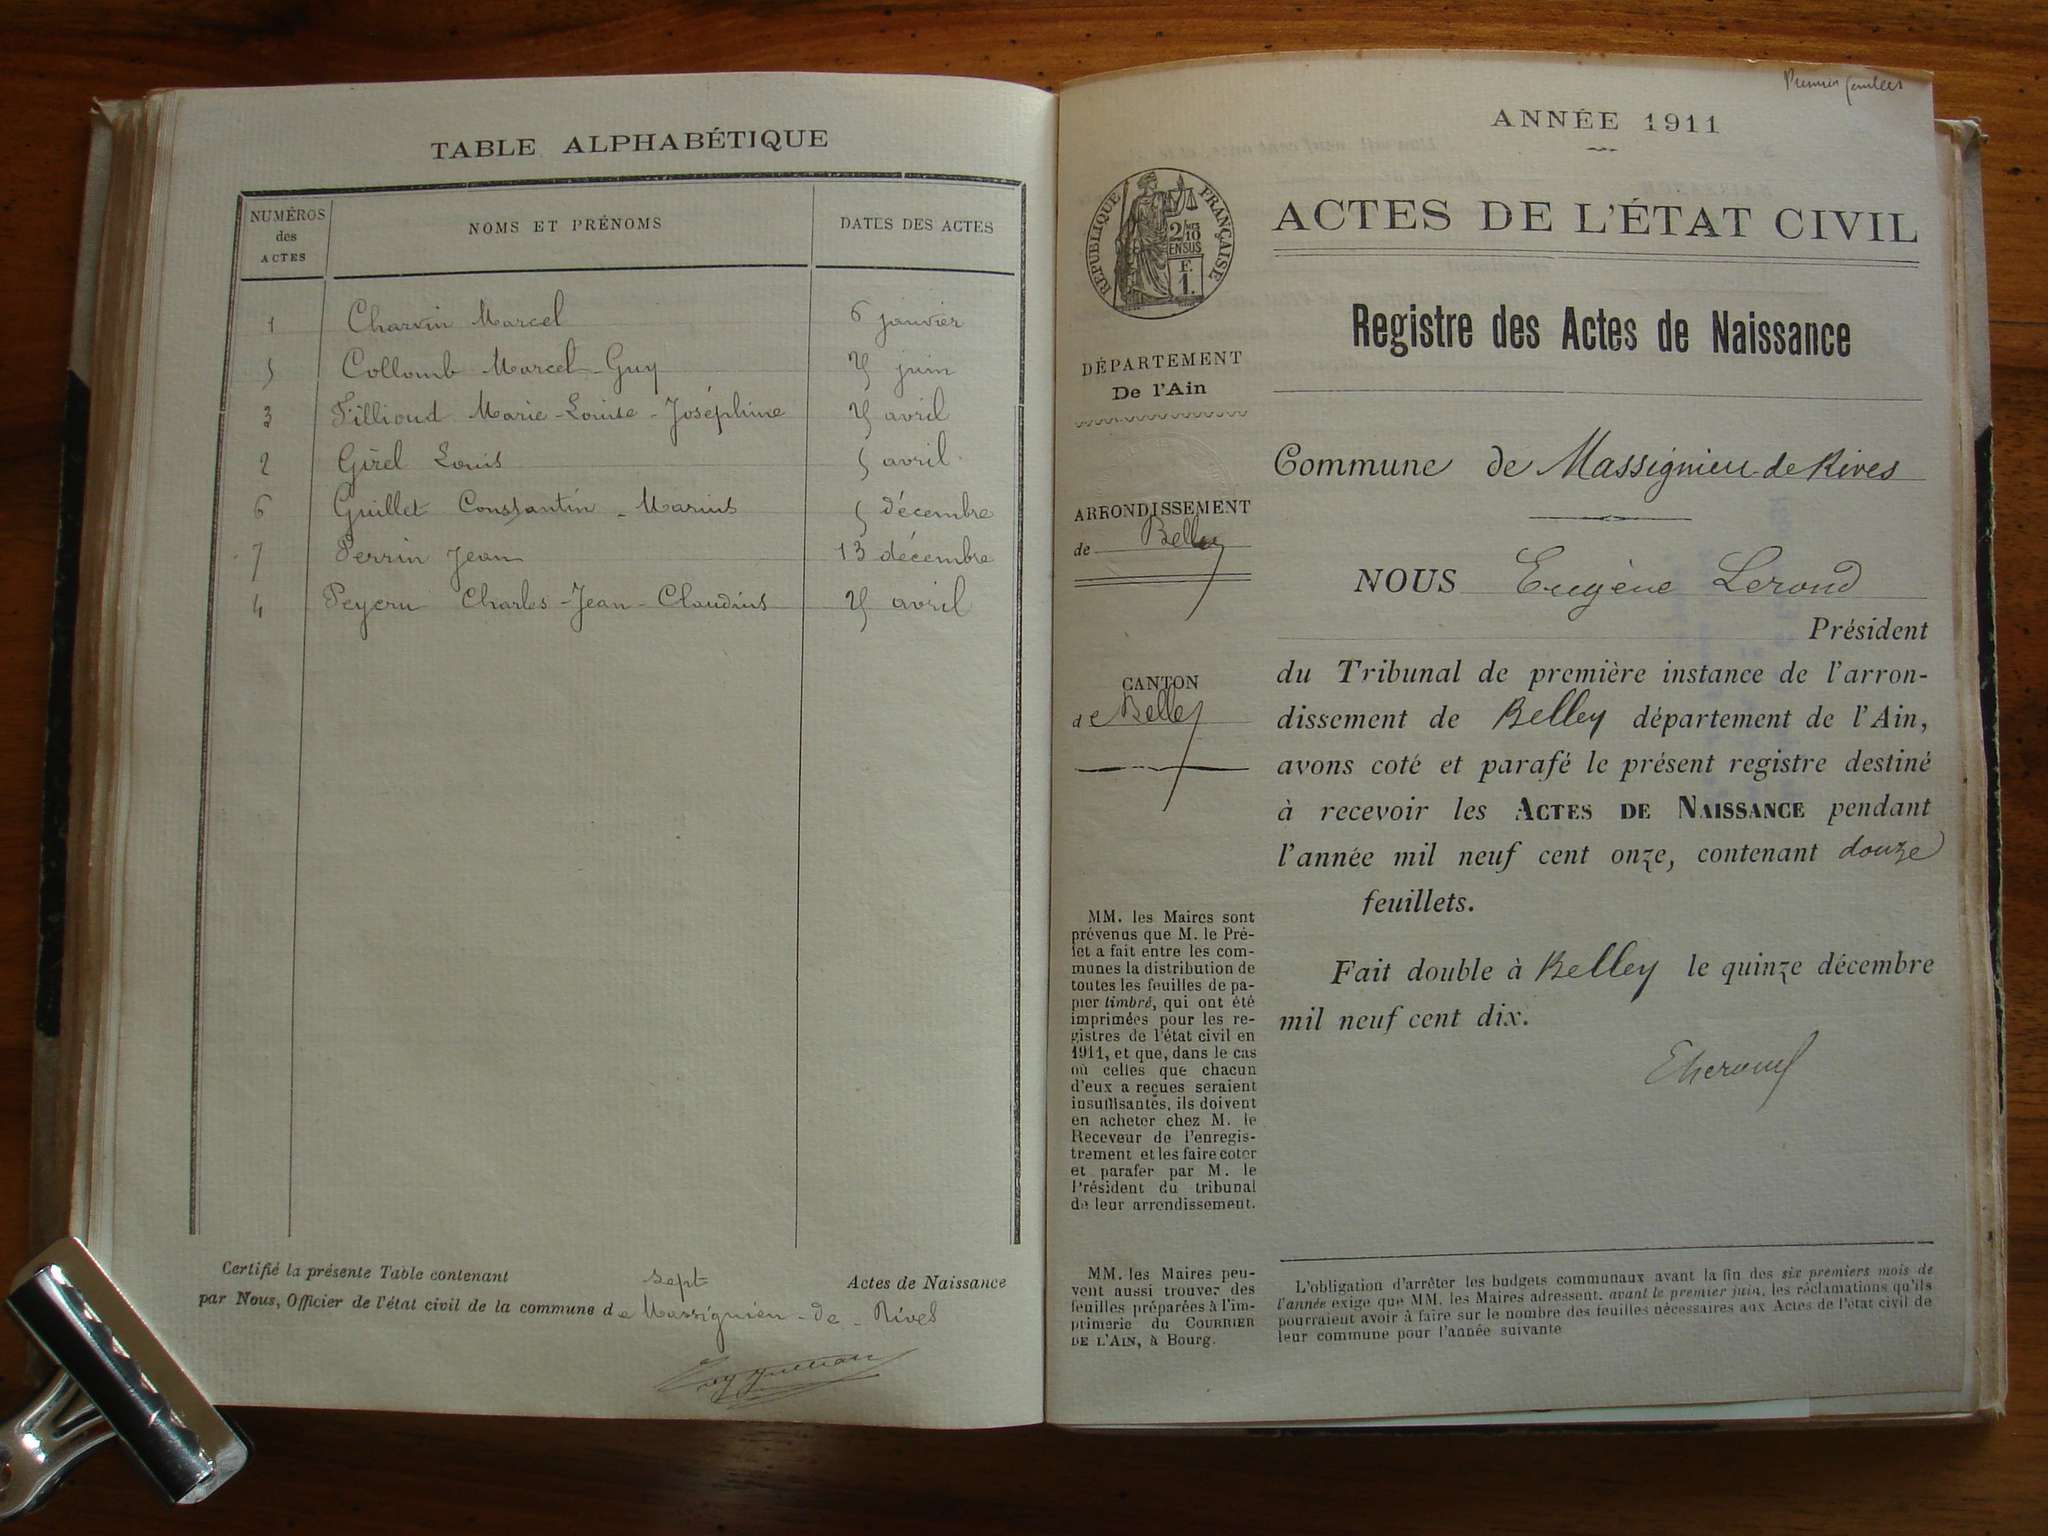 TABLE ALPHABÉTIQUE
NUMÉROS des ACTES NOMS ET PRÉNOMS DATES DES ACTES
1 Charvin Marcel 6 janvier
5 Collomb Marcel-Guy juin
3 Fillioud Marie-Louise-Joséphine avril
2 Girel Louis 5 avril
6 Guillet Constantin-Marius 5 décembre
7 Perrin Jean 13 décembre
4 Peycru Charles-Jean-Claudius avril
Certifié la présente Table contenant sept Actes de Naissance
par Nous, Officier de l'état civil de la commune de Massignieu-de-Rives
Premier feuillet
ANNÉE 1911
RÉPUBLIQUE FRANÇAISE
2/10 EN SUS
F. 1.
ACTES DE L'ÉTAT CIVIL
Registre des Actes de Naissance
DÉPARTEMENT
De l'Ain
ARRONDISSEMENT
de Belley
CANTON
de Belley
Commune de Massignieu-de-Rives
NOUS Eugène Lerond
Président
du Tribunal de première instance de l'arron-
dissement de Belley département de l'Ain,
avons coté et parafé le présent registre destiné
à recevoir les ACTES DE NAISSANCE pendant
l'année mil neuf cent onze, contenant douze
feuillets.
Fait double à Belley le quinze décembre
mil neuf cent dix.
MM. les Maires sont
prévenus que M. le Pré-
fet a fait entre les com-
munes la distribution de
toutes les feuilles de pa-
pier timbré, qui ont été
imprimées pour les re-
gistres de l'état civil en
1911, et que, dans le cas
où celles que chacun
d'eux a reçues seraient
insuffisantes, ils doivent
en acheter chez M. le
Receveur de l'enregis-
trement et les faire coter
et parafer par M. le
Président du tribunal
de leur arrondissement.
MM. les Maires peu-
vent aussi trouver des
feuilles préparées à l'im-
primerie du COURRIER
DE L'AIN, à Bourg.
L'obligation d'arrêter les budgets communaux avant la fin des six premiers mois de
l'année exige que MM. les Maires adressent, avant le premier juin, les réclamations qu'ils
pourraient avoir à faire sur le nombre des feuilles nécessaires aux Actes de l'état civil de
leur commune pour l'année suivante